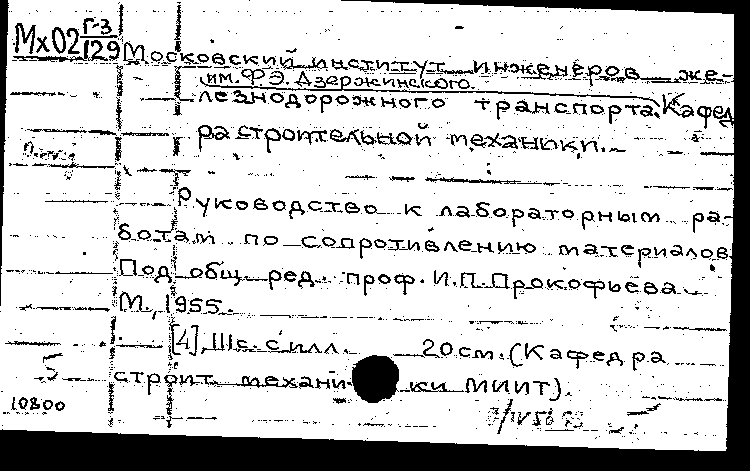 Мх02 Г-3
129
Московский институт инженеров же-
им. Ф.Э. Дзержинского.
лезнодорожного транспорта. Кафед
ра строительной механики.
Руководство к лабораторным ра-
ботам по сопротивлению материалов.
Под общ. ред. проф. И.П.Прокофьева.
М., 1955.
[4], 111с. с илл. 20см. (Кафедра
5 строит. механики МИИТ).
10800